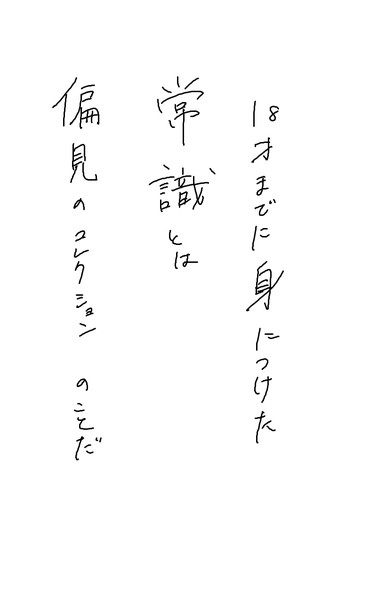 18才までに身につけた
常識とは
偏見のコレクション のことだ